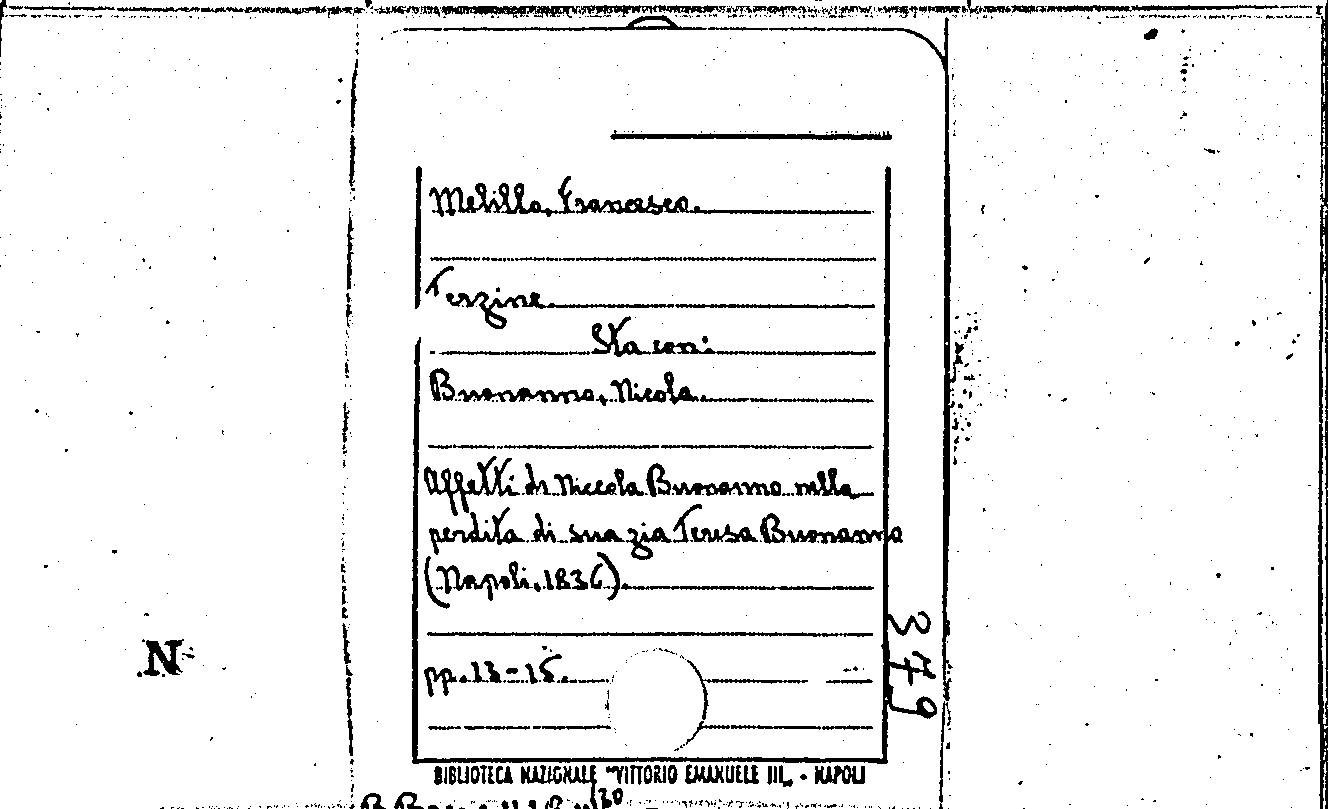 Melillo, Francesco.
Terzine.
Sta con:
Buonanno, Nicola.
Affetti di Niccola Buonanno nella
perdita di sua zia Teresa Buonanno
(Napoli, 1836).
pp. 13-15.
379
N
BIBLIOTECA NAZIONALE "VITTORIO EMANUELE III„ - NAPOLI